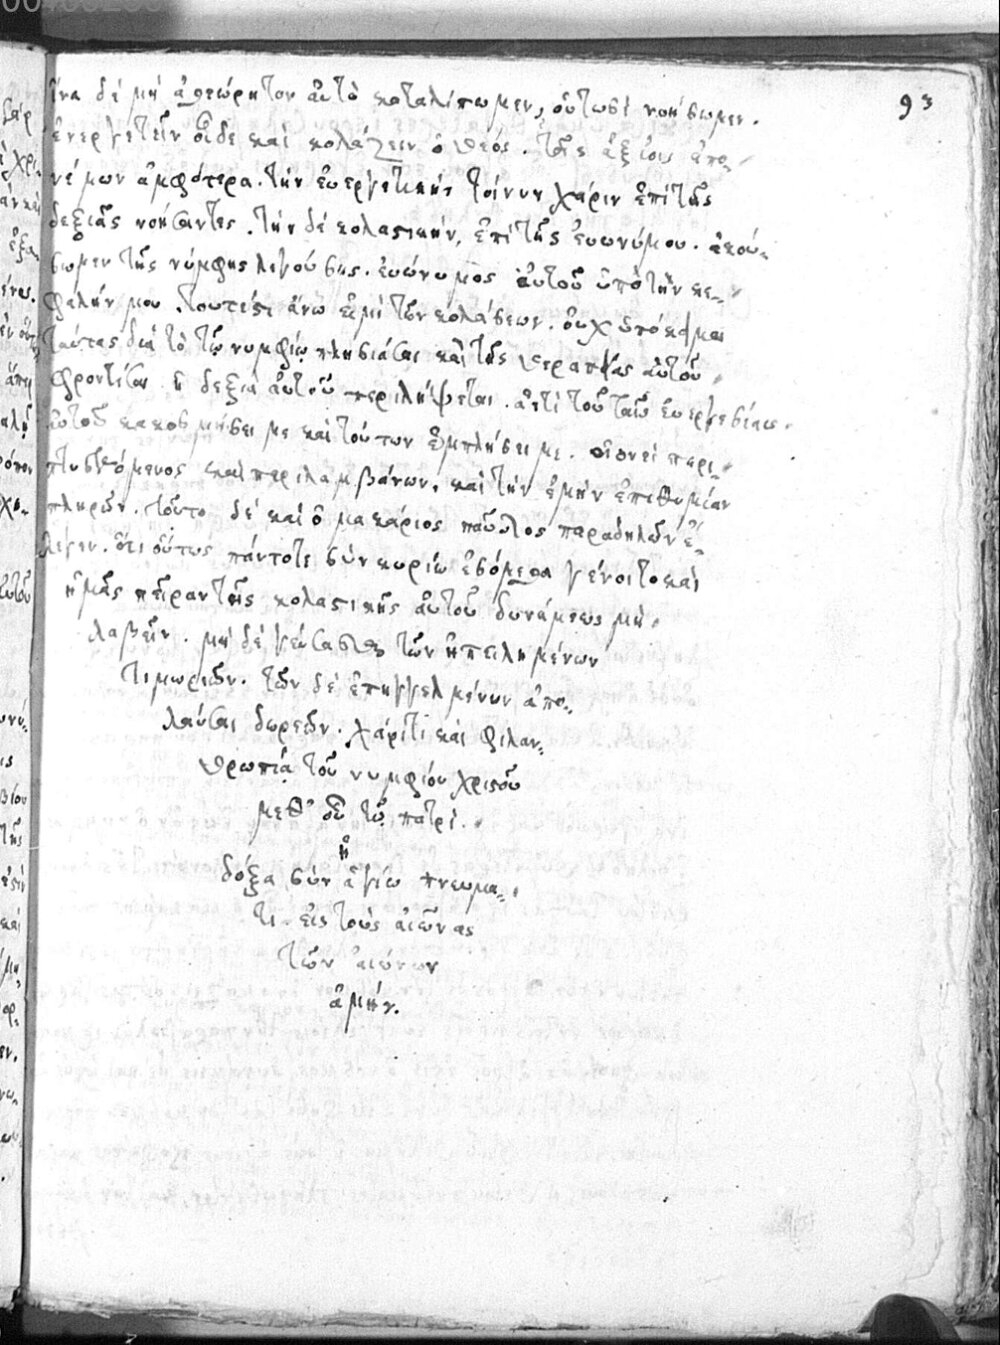 93
ἵνα δὲ μὴ ἀθεώρητον αὐτὸ καταλίπωμεν, οὑτωσὶ νοήσωμεν.
ἐνεργετεῖν οἶδε καὶ κολάζειν ὁ θεός. τοῖς ἀξίοις ἀπο-
νέμων ἀμφότερα. τὴν εὐεργετικὴν τοίνυν χάριν ἐπὶ τῆς
δεξιᾶς νοήσαντες. τὴν δὲ κολαστικὴν, ἐπὶ τῆς εὐωνύμου. ἀκού-
σωμεν τῆς νύμφης λεγούσης. εὐώνυμος αὐτοῦ ὑπὸ τὴν κε-
φαλήν μου. τουτέστι ἄνω εἰμὶ τῶν κολάσεων. οὐχ ὑπόκειμαι
ταύταις διὰ τὸ τῷ νυμφίῳ πλησιάσαι καὶ τῆς θεραπείας αὐτοῦ
φροντίσαι. ἡ δεξιὰ αὐτοῦ περιλήψεται. ἀντὶ τοῦ ταῖς εὐεργεσίαις
αὐτοῦ κακοσμήσει με καὶ τούτων ἐμπλήσει με. οἱονεὶ περι-
πτυσσόμενος καὶ περιλαμβάνων, καὶ τὴν ἐμὴν ἐπιθυμίαν
πληρῶν. τοῦτο δὲ καὶ ὁ μακάριος παῦλος παραδηλῶν ἔ-
λεγεν. ὅτι οὕτως πάντοτε σὺν κυρίῳ ἐσόμεθα γένοιτο καὶ
ἡμᾶς πεῖραν τῆς κολαστικῆς αὐτοῦ δυνάμεως μὴ
λαβεῖν. μὴ δὲ γεύσασθαι τῶν ἠπειλημένων
τιμωριῶν. τῶν δὲ ἐπηγγελμένων ἀπο-
λαῦσαι δωρεῶν. χάριτι καὶ φιλαν-
θρωπίᾳ τοῦ νυμφίου χριστοῦ
μεθ' οὗ τῷ πατρί.
ἡ
δόξα σὺν ἁγίω πνευμα-
τι. εἰς τοὺς αἰῶνας
τῶν αἰώνων
ἀμήν.